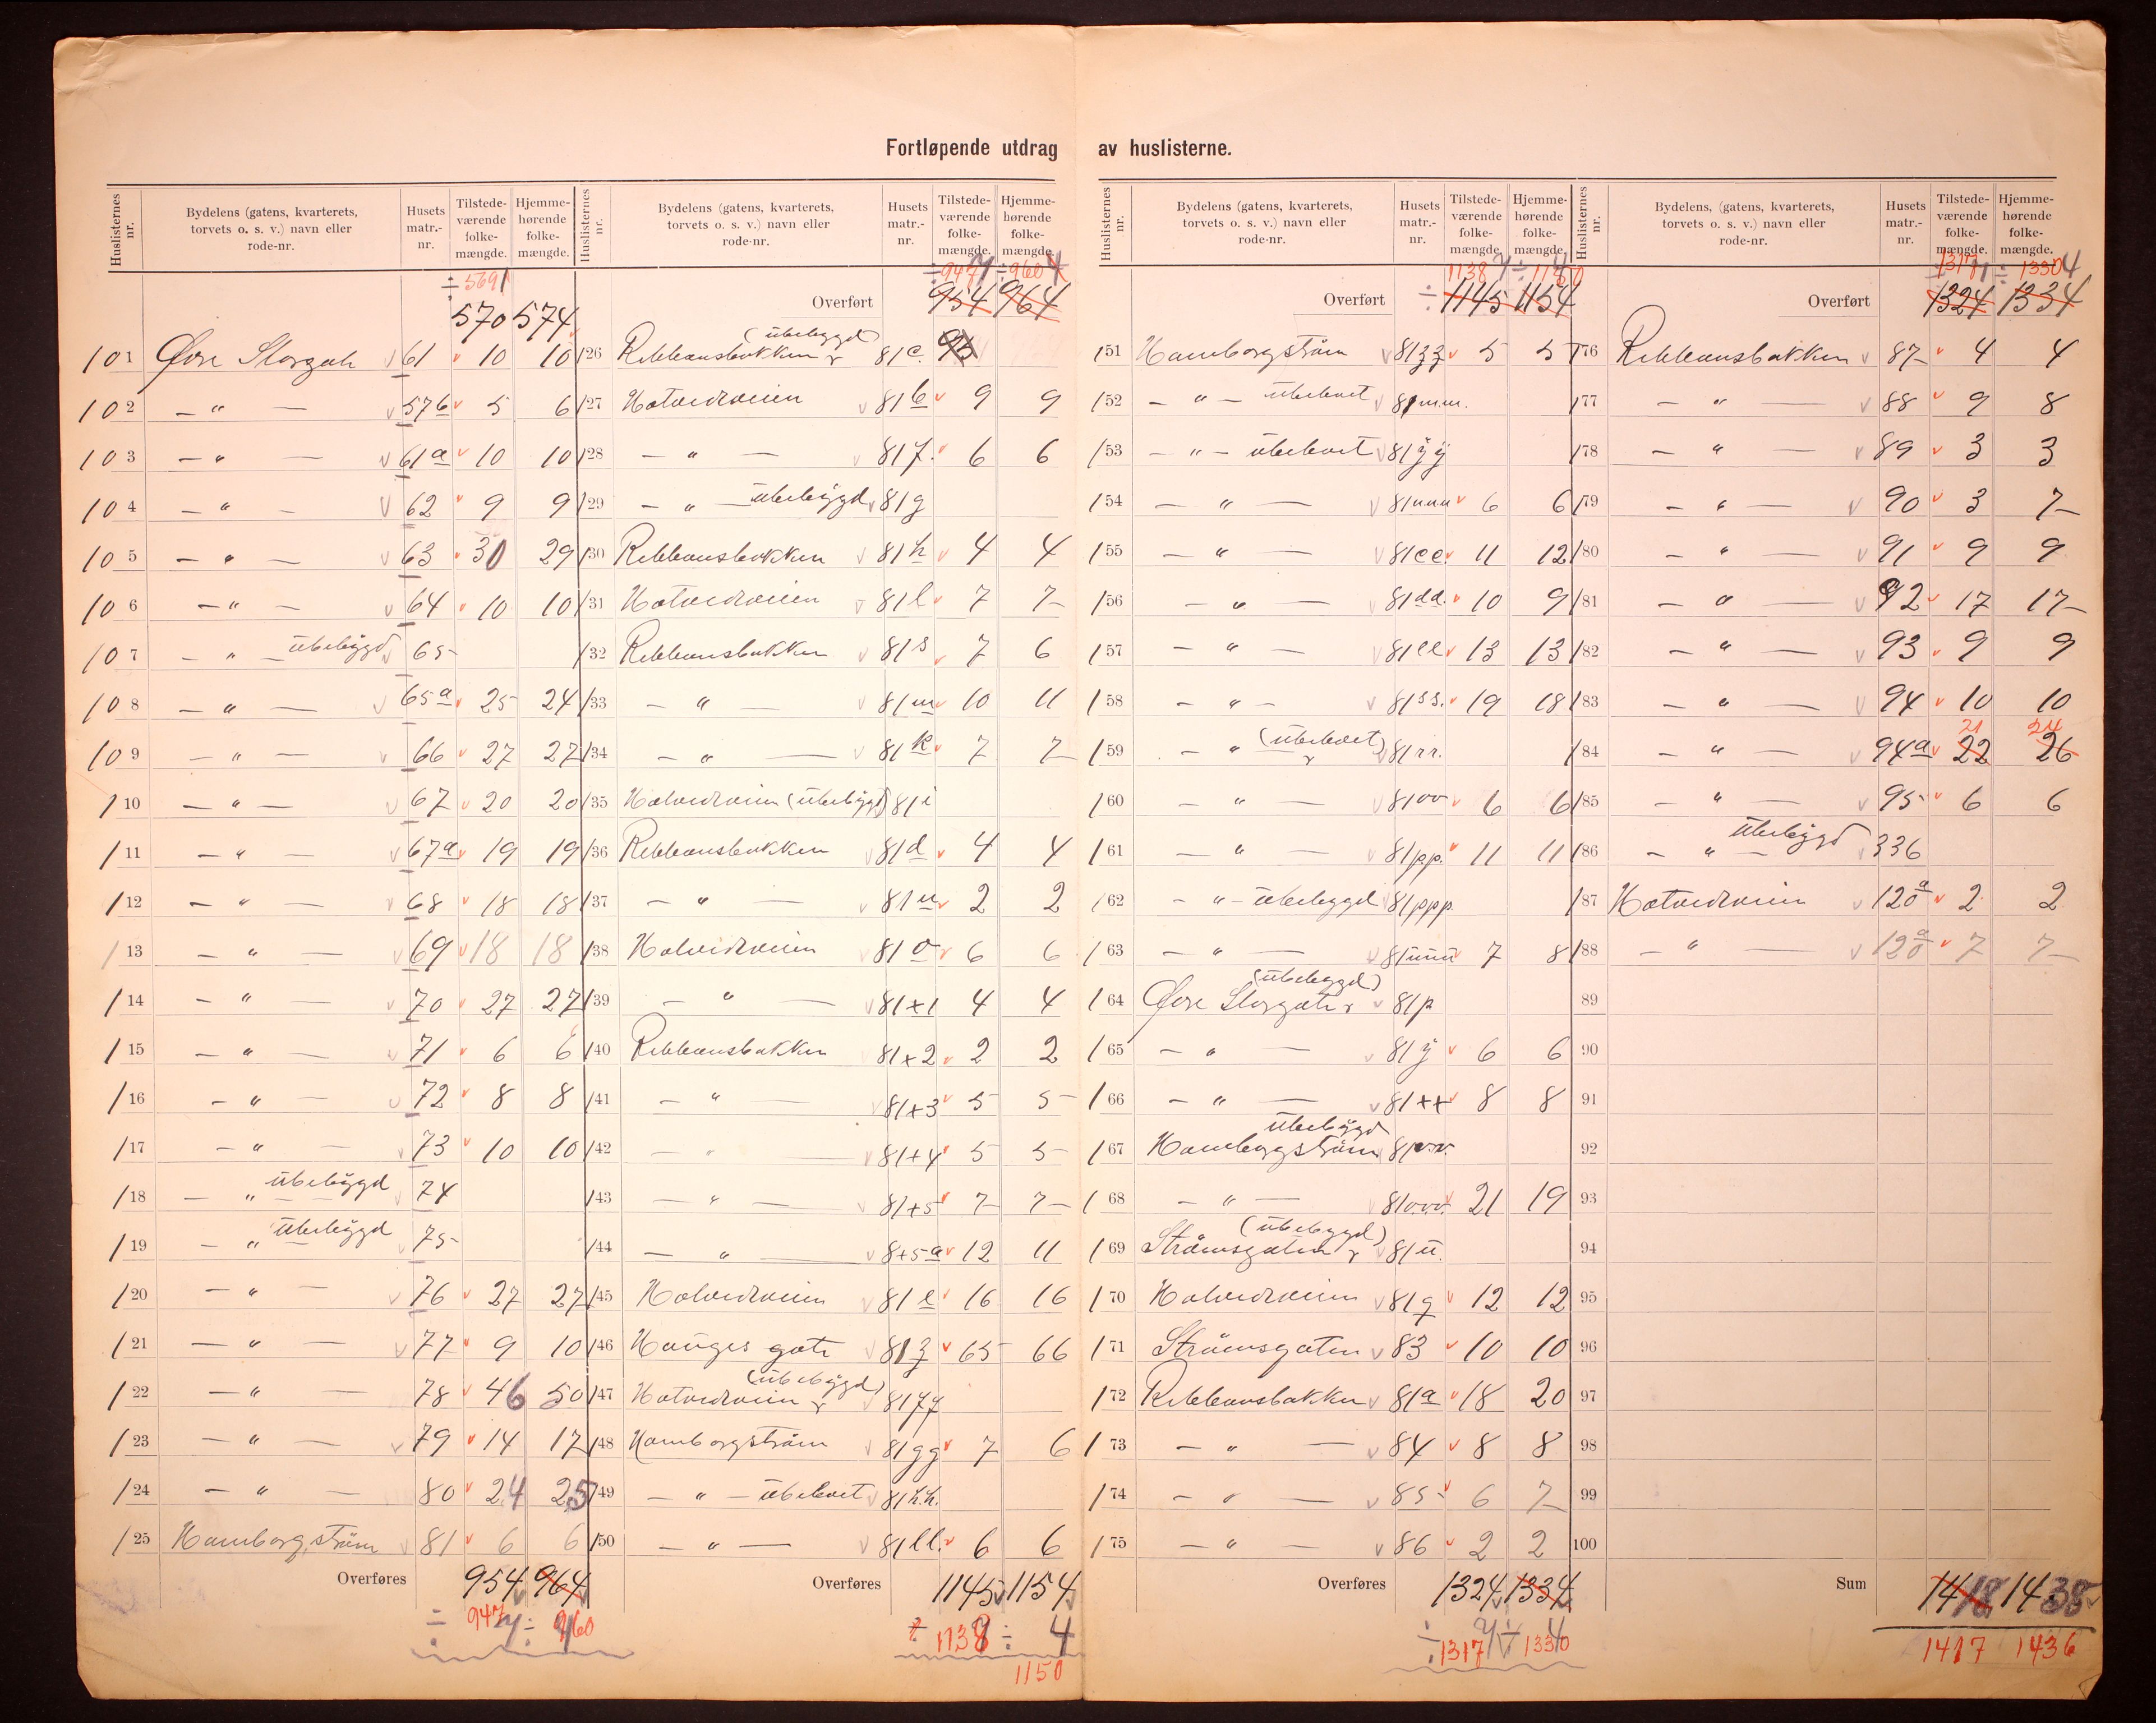 Fortløpende utdrag av huslisterne.
Huslisternes nr. Bydelens (gatens, kvarterets, torvets o. s. v.) navn eller rode-nr. Husets matr.-nr. Tilstede-værende folke-mængde. Hjemme-hørende folke-mængde.
÷ 5691
570 574
101 Øvre Storgate 61 10 10
102 — " — 57b 5 6
103 — " — 61a 10 10
104 — " — 62 9 9
105 — " — 63 30 29
106 — " — 64 10 10
107 — " — übebÿgd 65
108 — " — 65a 25 24
109 — " — 66 27 27
110 — " — 67 20 20
111 — " — 67a 19 19
112 — " — 68 18 18
113 — " — 69 18 18
114 — " — 70 27 27
115 — " — 71 6 6
116 — " — 72 8 8
117 — " — 73 10 10
118 — " — übebÿgd 74
119 — " — übebÿgd 75
120 — " — 76 27 27
121 — " — 77 9 10
122 — " — 78 46 50
123 — " — 79 14 17
124 — " — 80 24 25
125 Hamborgström 81 6 6
Overføres 954 964
÷ 947 ÷ 960
Huslisternes nr. Bydelens (gatens, kvarterets, torvets o. s. v.) navn eller rode-nr. Husets matr.-nr. Tilstede-værende folke-mængde. Hjemme-hørende folke-mængde.
÷ 947 ÷ 960 4
Overført 954 964
126 Rebbansbakken (übebyggd) 81c.
127 Hotvedtveien 81b 9 9
128 — " — 81f. 6 6
129 — " — übebÿgd 81g
130 Rebbansbakken 81h 4 4
131 Hotvedtveien 81l 7 7
132 Rebbansbakken 81s 7 6
133 — " — 81m 10 11
134 — " — 81k 7 7
135 Hotvedtveien (übebÿgd) 81i
136 Rebbansbakken 81d 4 4
137 — " — 81n 2 2
138 Hotvedtveien 81o 6 6
139 — " — 81+1 4 4
140 Rebbansbakken 81+2 2 2
141 — " — 81+3 5 5
142 — " — 81+4 5 5
143 — " — 81+5 7 7
144 — " — 8+5a 12 11
145 Hotvedtveien 81e 16 16
146 Hauges gate 81z 65 66
147 Hotvedtveien (übebÿgd) 81ff
148 Hamborgström 81gg 7 6
149 — " — übeboet 81h.h.
150 — " — 81ll. 6 6
Overføres 1145 1154
÷ 1138 ÷ 4
1150
Huslisternes nr. Bydelens (gatens, kvarterets, torvets o. s. v.) navn eller rode-nr. Husets matr.-nr. Tilstede-værende folke-mængde. Hjemme-hørende folke-mængde.
1138 ÷ 1150
Overført ÷ 1145 1154
151 Hamborgström 81zz 5 5
152 — " — übeboet 81m.m.
153 — " — übeboet 81ÿÿ
154 — " — 81nnn 6 6
155 — " — 81ee. 11 12
156 — " — 81dd. 10 9
157 — " — 81ll 13 13
158 — " — 81ss. 19 18
159 — " — (übeboet) 81rr.
160 — " — 81oo 6 6
161 — " — 81pp. 11 11
162 — " — übebyggd 81ppp.
163 — " — 81üüü 7 8
164 Øvre Storgate (übebyggd) 81p
165 — " — 81ÿ 6 6
166 — " — 81++ 8 8
167 Hamborgström übebÿgd 81v.v.
168 — " — 81ooo. 21 19
169 Strömsgaten (übebyggd) 81ü.
170 Hotvedtveien 81q 12 12
171 Strömsgaten 83 10 10
172 Rebbansbakken 81a 18 20
173 — " — 84 8 8
174 — " — 85 6 7
175 — " — 86 2 2
Overføres 1324 1334
÷ 1317 ÷ 1330
Huslisternes nr. Bydelens, (gatens, kvarterets, torvets o. s. v.) navn eller rode-nr. Husets matr.-nr. Tilstede-værende folke-mængde. Hjemme-hørende folke-mængde.
1317 ÷ 1330 4
Overført 1324 1334
176 Rebbansbakken 87 4 4
177 — " — 88 9 8
178 — " — 89 3 3
179 — " — 90 3 7
180 — " — 91 9 9
181 — " — 92 17 17
182 — " — 93 9 9
183 — " — 94 10 10
21 24
184 — " — 94a 22 26
185 — " — 95 6 6
186 — " — übebÿgd 336
187 Hotvedtveien 120a 2 2
188 — " — 120a 7 7
89
90
91
92
93
94
95
96
97
98
99
100
Sum 1418 1438
1417 1436